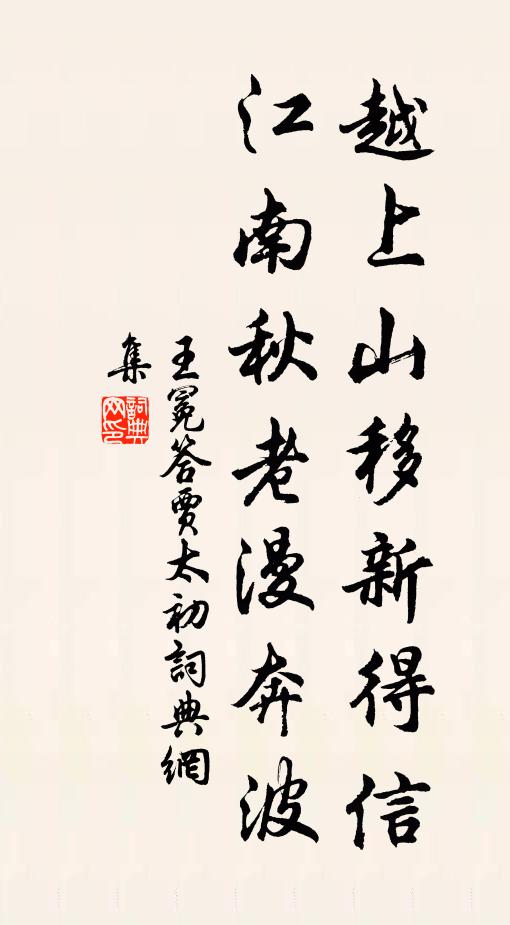 越上山移新得信
江南秋老漫奔波
王冕答賈太初詞典網
集
詞典
网印